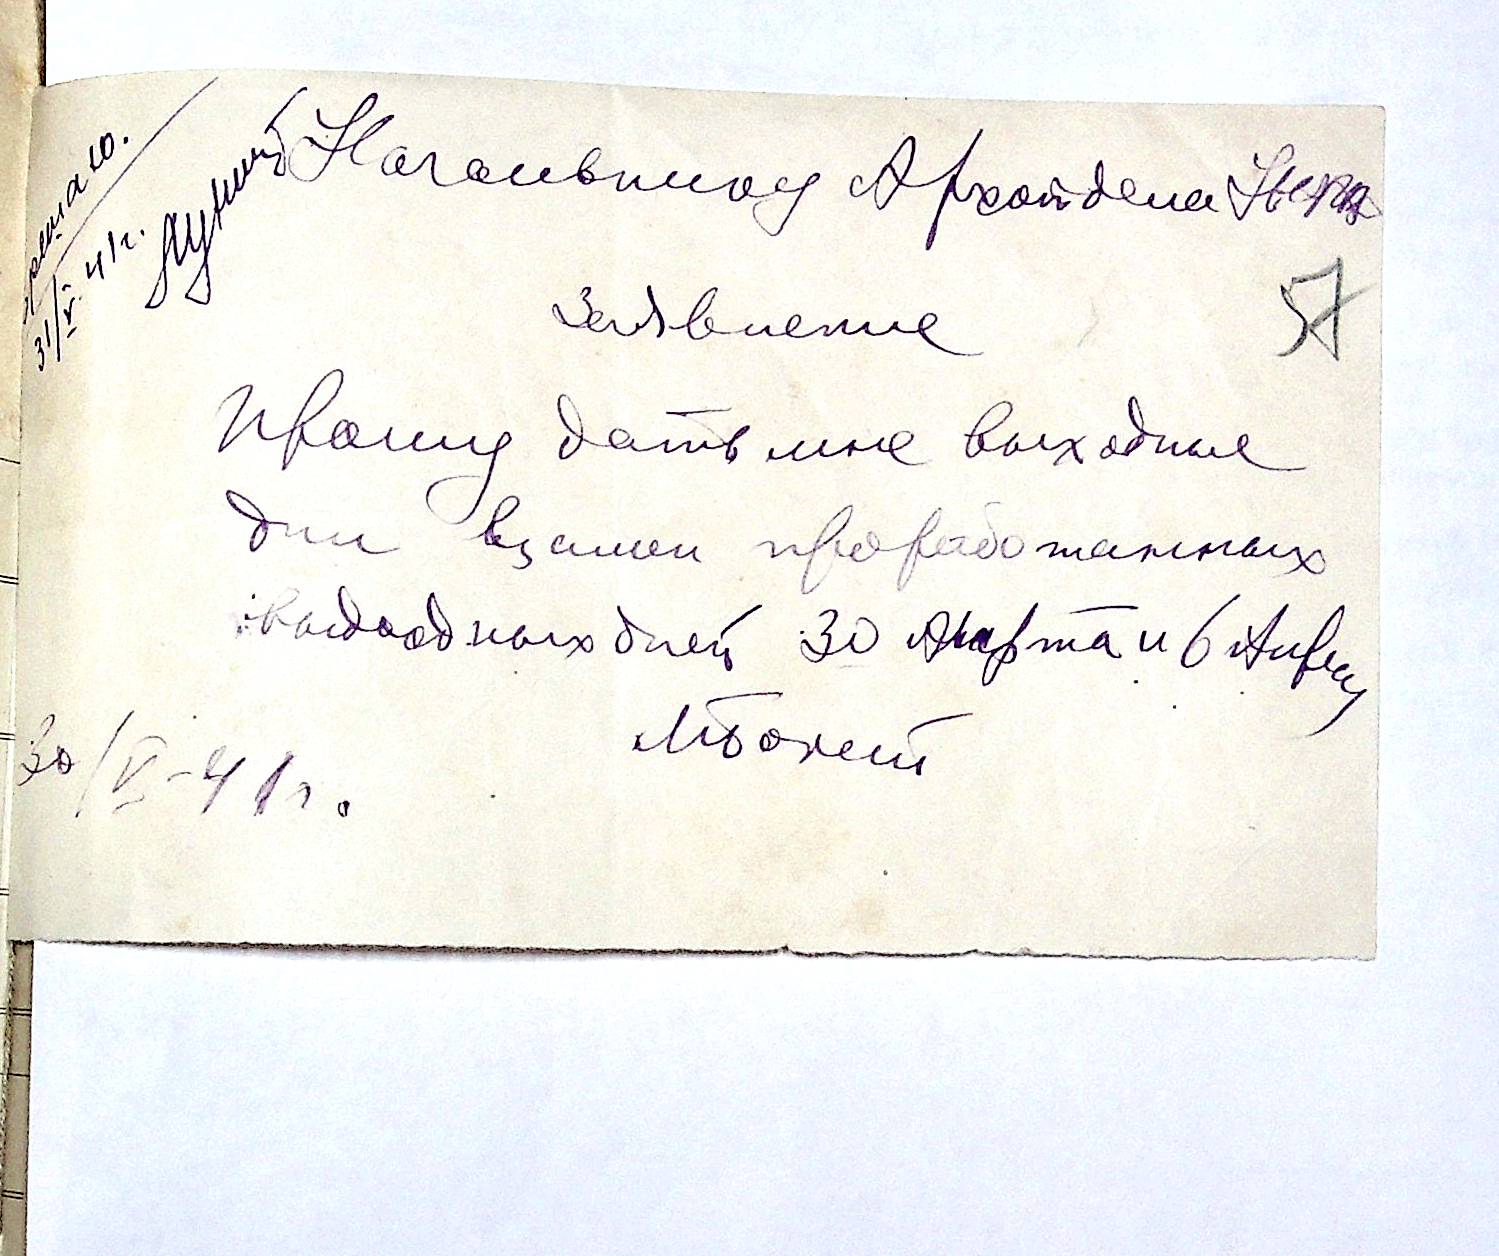 Разрешаю.
31/V. 41 г.
Начальнику Архотдела НКВД
57
Заявление
Прошу дать мне выходные
дни взамен проработанных
выходных дней 30 марта и 6 Апреля
30/V-41 г.